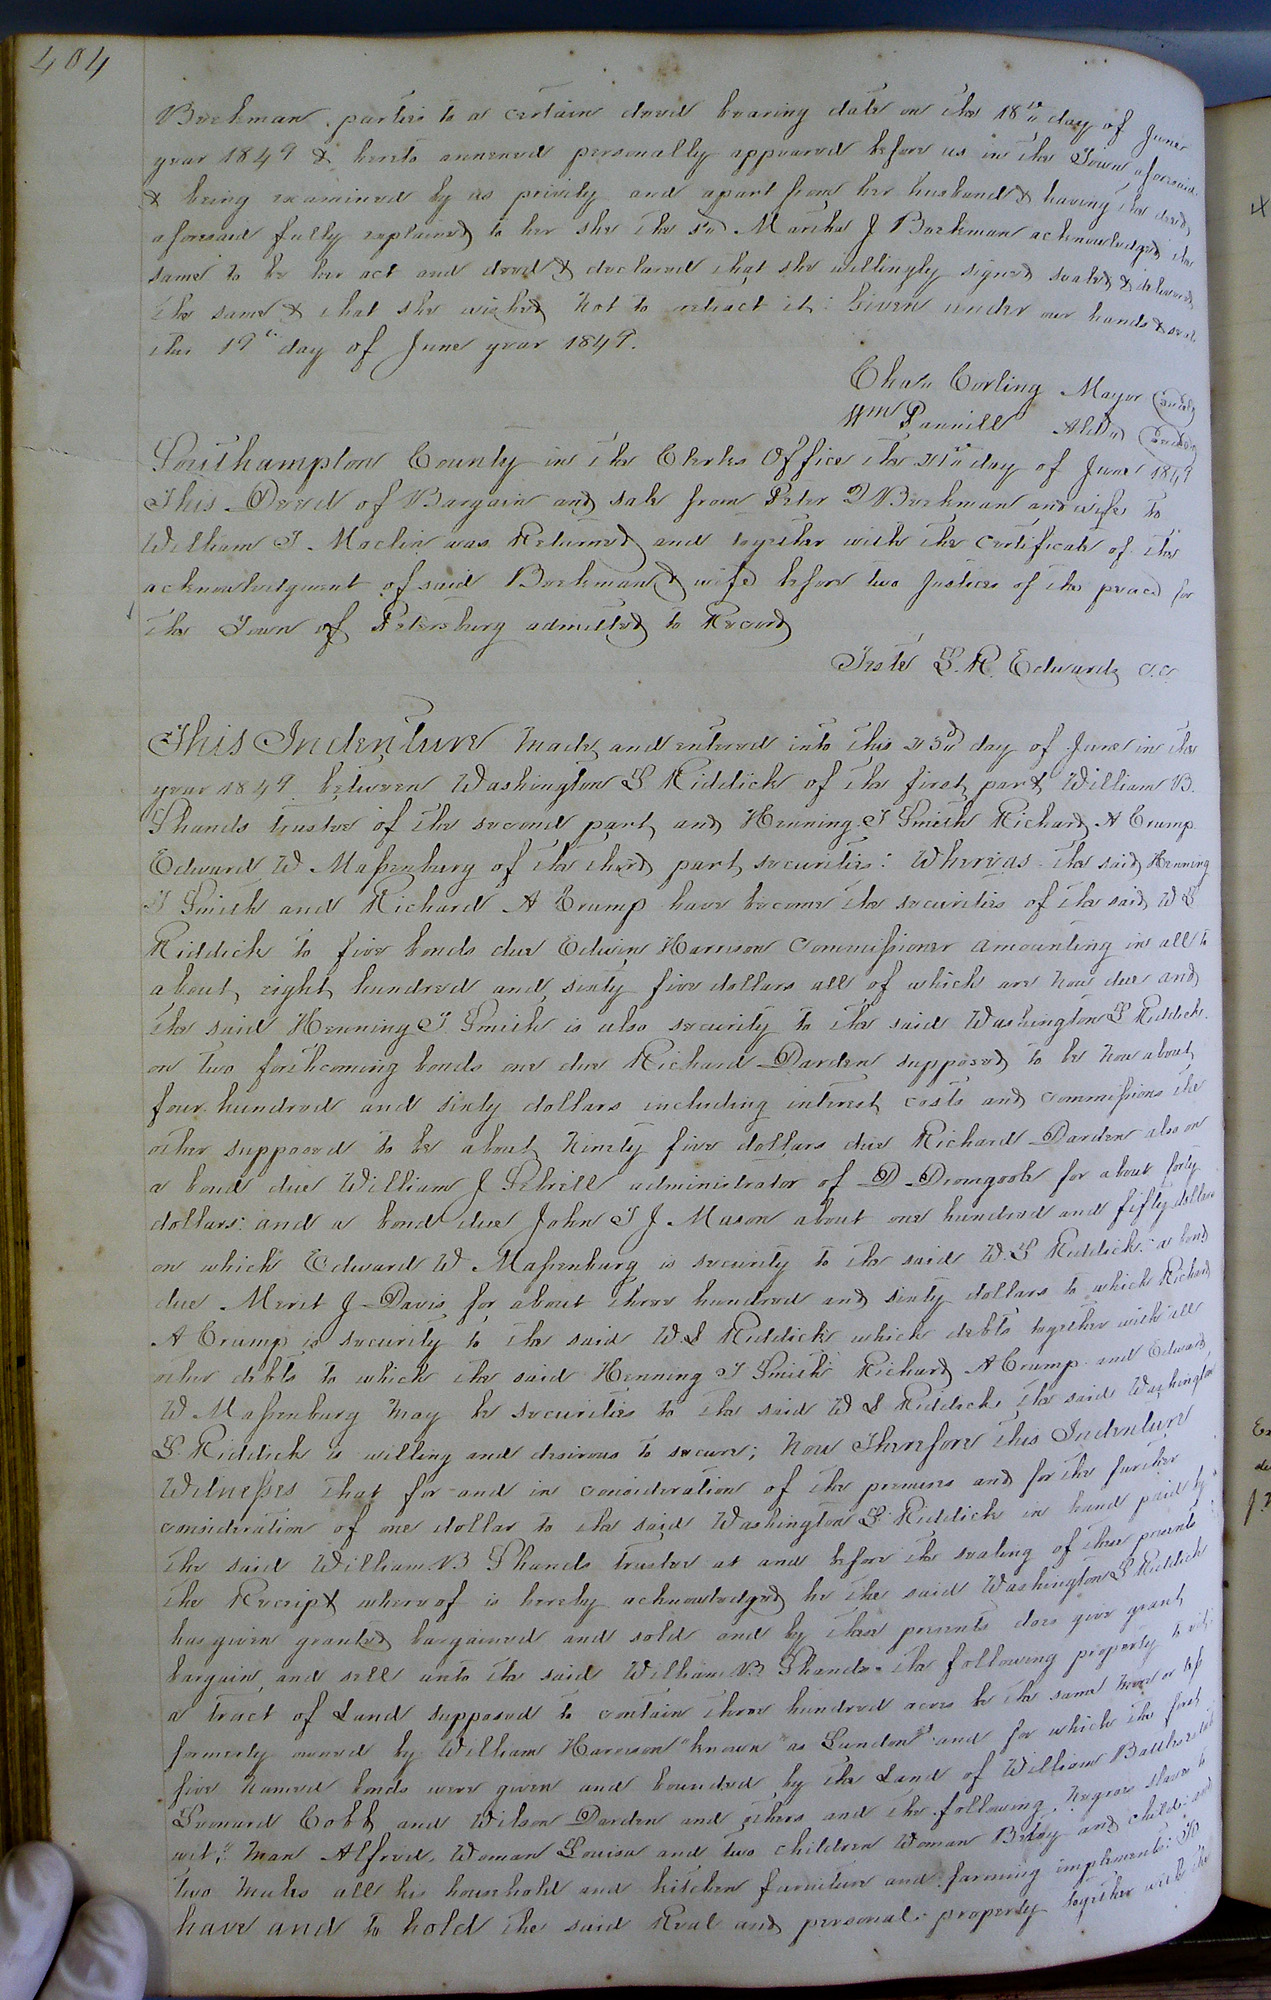 404
Beekman parties to a certain deed bearing date on the 18th day of June
year 1849 & hereto annexed personally appeared before us in the Town aforesaid
& being examined by us privily and apart from her husband & having the deed
aforesaid fully explained to her she the sd Martha J Beekman acknowledged the
same to be her act and deed & declared that she willingly signed sealed & delivered
the same & that she wished not to retract it: Given under our hands & seals
this 19th day of June year 1849.
Chas Corling Mayor (seal)
Wm Pannill Aldn (seal)
Southampton County in the Clerks Office the 21st day of June 1849
This Deed of Bargain and sale from Peter D Beekman and wife to
William T. Maclin was Returned and together with the Certificate of the
acknowledgment of said Beekman & wife before two Justices of the peace for
the Town of Petersburg admitted to Record
Teste L. R. Edwards c.c.
This Indenture Made and entered into this 23d day of June in the
year 1849 between Washington L Riddick of the first part William B.
Shands trustee of the second part and Henning T Smith Richard A Crump
Edward W Massenburg of the third part securities: Whereas the said Henning
T Smith and Richard A Crump have become the securities of the said W L
Riddick to five bonds due Edwin Harrison Commissioner amounting in all to
about eight hundred and sixty five dollars all of which are now due and
the said Henning T. Smith is also security to the said Washington L Riddick
on two forthcoming bonds one due Richard Darden supposed to be now about
four hundred and sixty dollars including interest costs and commissions the
other supposed to be about ninety five dollars due Richard Darden also on
a bond due William J Sebrell administrator of D Dromgoole for about forty
dollars: and a bond due John T J Mason about one hundred and fifty dollars
on which Edward W Massenburg is security to the said W. L Riddick: a bond
due Merit J Davis for about three hundred and sixty dollars to which Richard
A Crump is security to the said W L Riddick which debts together with all
other debts to which the said Henning T Smith Richard A Crump and Edward
W Massenburg may be securities to the said W L Riddick, the said Washington
L. Riddick is willing and desirous to secure; Now Therefore This Indenture
Witnesses that for and in consideration of the premises and for the further
consideration of one dollar to the said Washington L Riddick in hand paid by
the said William B Shands trustee at and before the sealing of these presents
the Receipt whereof is hereby acknowledged he the said Washington L Riddick
has given granted bargained and sold and by these presents does give grant
bargain, and sell unto the said William B Shands the following property to wit:
a tract of Land supposed to contain three hundred acres be the same more or less
formerly owned by William Harrison "known as Lundon" and for which the first
five named bonds were given and bounded by the Land of William
Leonard Cobb and Wilson Darden and others and the following Negroes slaves to
wit; Man Alfred, Woman Louisa and two children Woman Betsy and child: and
two mules all his household and kitchen furniture and farming implements: To
have and to hold the said Real and personal property together with the